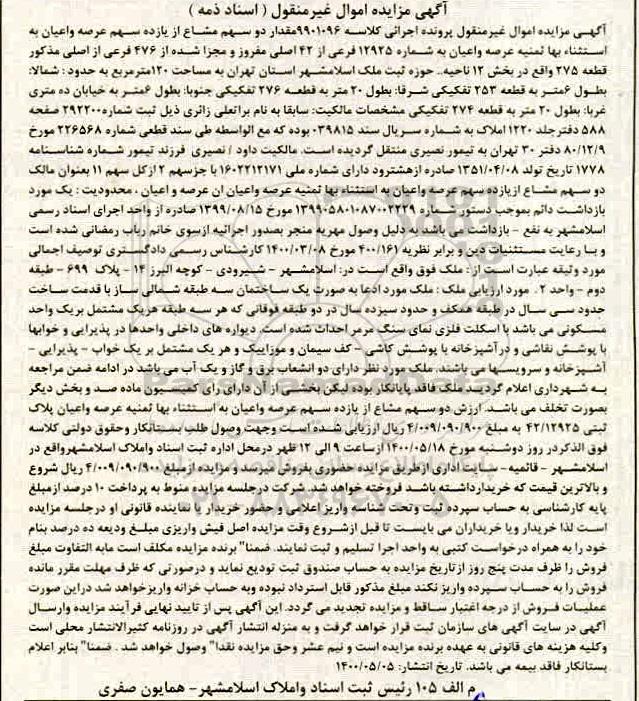 آگهی مزایده اموال غیرمنقول ( اسناد ذمه )
آگهی مزایده اموال غیرمنقول پرونده اجرائی کلاسه ۹۹۰۱۰۹۶مقدار دو سهم مشاع از یازده سهم عرصه واعیان به
استثناء بها ثمنیه عرصه واعیان به شماره ۱۲۹۲۵ فرعی از ۴۲ اصلی مفروز و مجزا شده از ۴۷۶ فرعی از اصلی مذکور
قطعه ۲۷۵ واقع در بخش ۱۲ ناحیه.. حوزه ثبت ملک اسلامشهر استان تهران به مساحت ۱۲۰مترمربع به حدود : شمالا:
بطول ۶متر به قطعه ۲۵۳ تفکیکی شرقا: بطول ۲۰ متر به قطعه ۲۷۶ تفکیکی جنوبا: بطول ۶متر به خیابان ده متری
غربا: بطول ۲۰ متر به قطعه ۲۷۴ تفکیکی مشخصات مالکیت: سابقا به نام براتعلی زائری ذیل ثبت شماره۲۹۲۲۰۰ صفحه
۵۸۸ دفترجلد ۱۲۲۰ املاک به شماره سریال سند ۰۳۹۸۱۵بوده که مع الواسطه طی سند قطعی شماره ۲۲۶۵۶۸ مورخ
۸۰/۱۲/۹ دفتر ۳۰ تهران به تیمور نصیری منتقل گردیده است. مالکیت داود / نصیری فرزند تیمور شماره شناسنامه
۱۷۷۸ تاریخ تولد ۱۳۵۱/۰۴/۰۸ صادره ازهشترود دارای شماره ملی ۱۶۰۲۲۱۲۱۷۱ با جزسهم ۲ ازکل سهم ۱۱ بعنوان مالک
دو سهم مشاع ازیازده سهم عرصه واعیان به استثناء بها ثمنیه عرصه واعیان ان عرصه و اعیان ، محدودیت : یک مورد
بازداشت دائم بموجب دستور شماره ۱۳۹۹۰۵۸۰۱۰۸۷۰۰۲۲۳۹ مورخ ۱۳۹۹/۰۸/۱۵ صادره از واحد اجرای اسناد رسمی
اسلامشهر به نفع - بازداشت می باشد به دلیل وصول مهریه منجر بصدور اجرائیه ازسوی خانم رباب رمضانی شده است
و با رعایت مستثنیات دین و برابر نظریه ۴۰۰/۱۶۱ مورخ ۱۴۰۰/۰۳/۰۸ کارشناس رسمی دادگستری توصیف اجمالی
مورد وثیقه عبارت است از : ملک فوق واقع است در: اسلامشهر - شیرودی - کوچه البرز ۱۴ - پلاک ۶۹۹ - طبقه
دوم - واحد ۲ . مورد ارزیابی ملک : ملک مورد ادعا به صورت یک ساختمان سه طبقه شمالی ساز با قدمت ساخت
حدود سی سال در طبقه همکف و حدود سیزده سال در دو طبقه فوقانی که هر سه طبقه هریک مشتمل بریک واحد
مسکونی می باشد با اسکلت فلزی نمای سنگ مرمر احداث شده است. دیواره های داخلی واحدها در پذیرایی و خوابها
با پوشش نقاشی و درآشپزخانه با پوشش کاشی - کف سیمان و موزاییک و هر یک مشتمل بر یک خواب - پذیرایی -
آشپزخانه و سرویسها می باشند. ملک مورد نظر دارای دو انشعاب برق و گاز و یک آب می باشد در ادامه ضمن مراجعه
به شهرداری اعلام گردید ملک فاقد پایانکار بوده لیکن بخشی از آن دارای رای کمیسیون ماده صد و بخش دیگر
بصورت تخلف می باشد. ارزش دو سهم مشاع از یازده سهم عرصه واعیان به استثناء بها ثمنیه عرصه واعیان پلاک
ثبتی ۴۲/۱۲۹۲۵ به مبلغ ۴/۰۰۹/۰۹۰/۹۰۰ ریال ارزیابی شده است وجهت وصول طلب بستانکار وحقوق دولتی کلاسه
فوق الذکردر روز دوشنبه مورخ ۱۴۰۰/۰۵/۱۸ ازساعت ۹ الی ۱۲ ظهر درمحل اداره ثبت اسناد واملاک اسلامشهرواقع در
اسلامشهر - قائمیه - سایت اداری ازطریق مزایده حضوری بفروش میرسد و مزایده ازمبلغ ۴/۰۰۹/۰۹۰/۹۰۰ ریال شروع
و بالاترین قیمت که خریدارداشته باشد فروخته خواهد شد. شرکت درجلسه مزایده منوط به پرداخت ۱۰ درصد ازمبلغ
پایه کارشناسی به حساب سپرده ثبت وتحت شناسه واریز اعلامی و حضور خریدار یا نماینده قانونی او درجلسه مزایده
است لذا خریدار ویا خریداران می بایست تا قبل ازشروع وقت مزایده اصل فیش واریزی مبلغ ودیعه ده درصد بنام
خود را به همراه درخواست کتبی به واحد اجرا تسلیم و ثبت نمایند. ضمنا" برنده مزایده مکلف است مابه التفاوت مبلغ
فروش را ظرف مدت پنج روز ازتاریخ مزایده به حساب صندوق ثبت تودیع نماید و درصورتی که ظرف مهلت مقرر مانده
فروش را به حساب سپرده واریز نکند مبلغ مذکور قابل استرداد نبوده وبه حساب خزانه واریزخواهد شد دراین صورت
عملیات فروش از درجه اعتبار ساقط و مزایده تجدید می گردد. این آگهی پس از تایید نهایی فرآیند مزایده وارسال
آگهی در سایت آگهی های سازمان ثبت قرار خواهد گرفت و به منزله انتشار آگهی در روزنامه کثیرالانتشار محلی است
وکلیه هزینه های قانونی به عهده برنده مزایده است و نیم عشر وحق مزایده نقدا" وصول خواهد شد . ضمنا" بنابر اعلام
بستانکار فاقد بیمه می باشد. تاریخ انتشار: ۱۴۰۰/۰۵/۰۵
م الف ۱۰۵ رئیس ثبت اسناد واملاک اسلامشهر- همایون صفری